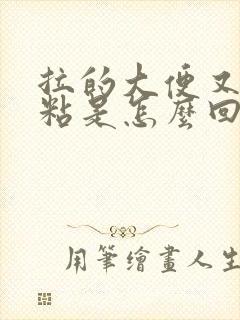 拉的大便又
粘是怎麼回
用筆繪畫人生